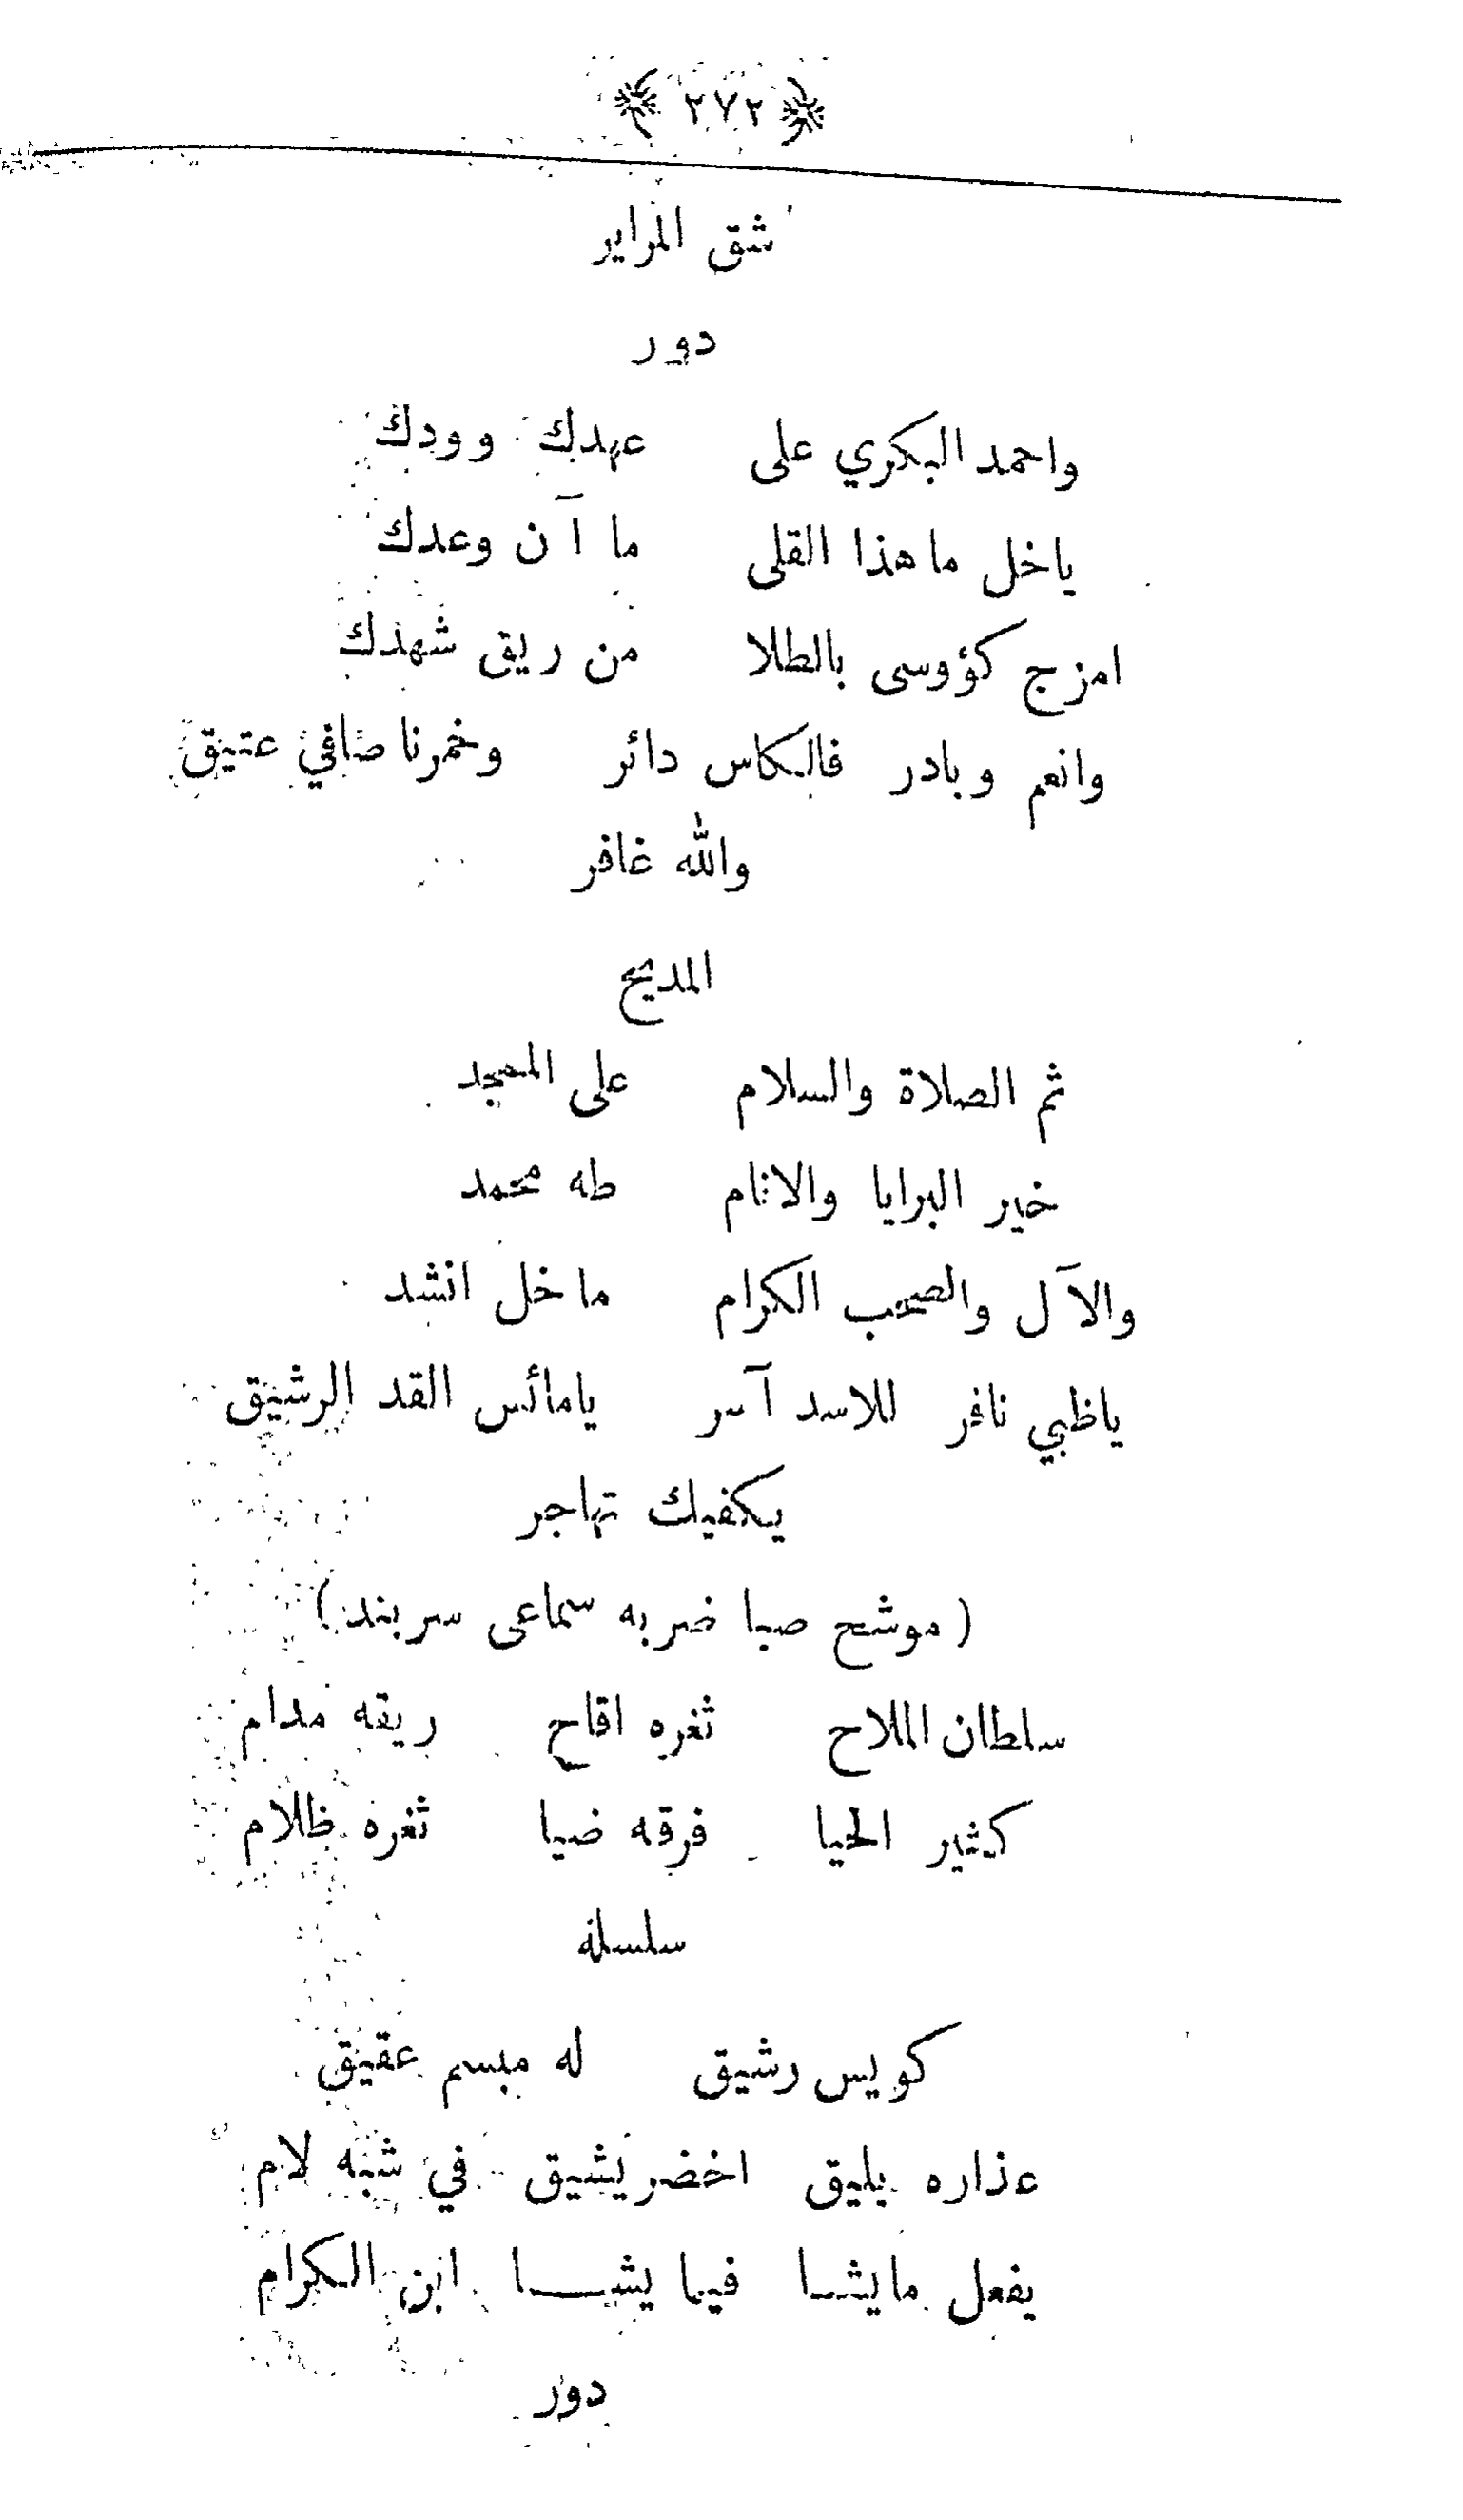 ﴿ ٢٧٢ ﴾
شق المراير
دور
واحمد البكري على عهدك وودك
ياخل ماهذا القلى ما آن وعدك
امزج كؤوسى بالطلا من ريق شهدك
وانعم وبادر فالكاس دائر وخمرنا صافي عتيق
والله غافر
المديح
ثم الصلاة والسلام على الممجد
خير البرايا والانام طه محمد
والآل والصحب الكرام ماخل انشد
ياظبي نافر للاسد آسر يامائس القد الرشيق
يكفيك تهاجر
(موشح صبا ضربه سماعى سربند)
سلطان الملاح ثغره اقاح ريقه مدام
كثير الحيا فرقه ضيا ثغره ظلام
سلسله
كويس رشيق له مبسم عقيق
عذاره يليق اخضر يشيق في شبه لام
يفعل مايشا فيما يشــا ابن الكرام
دور